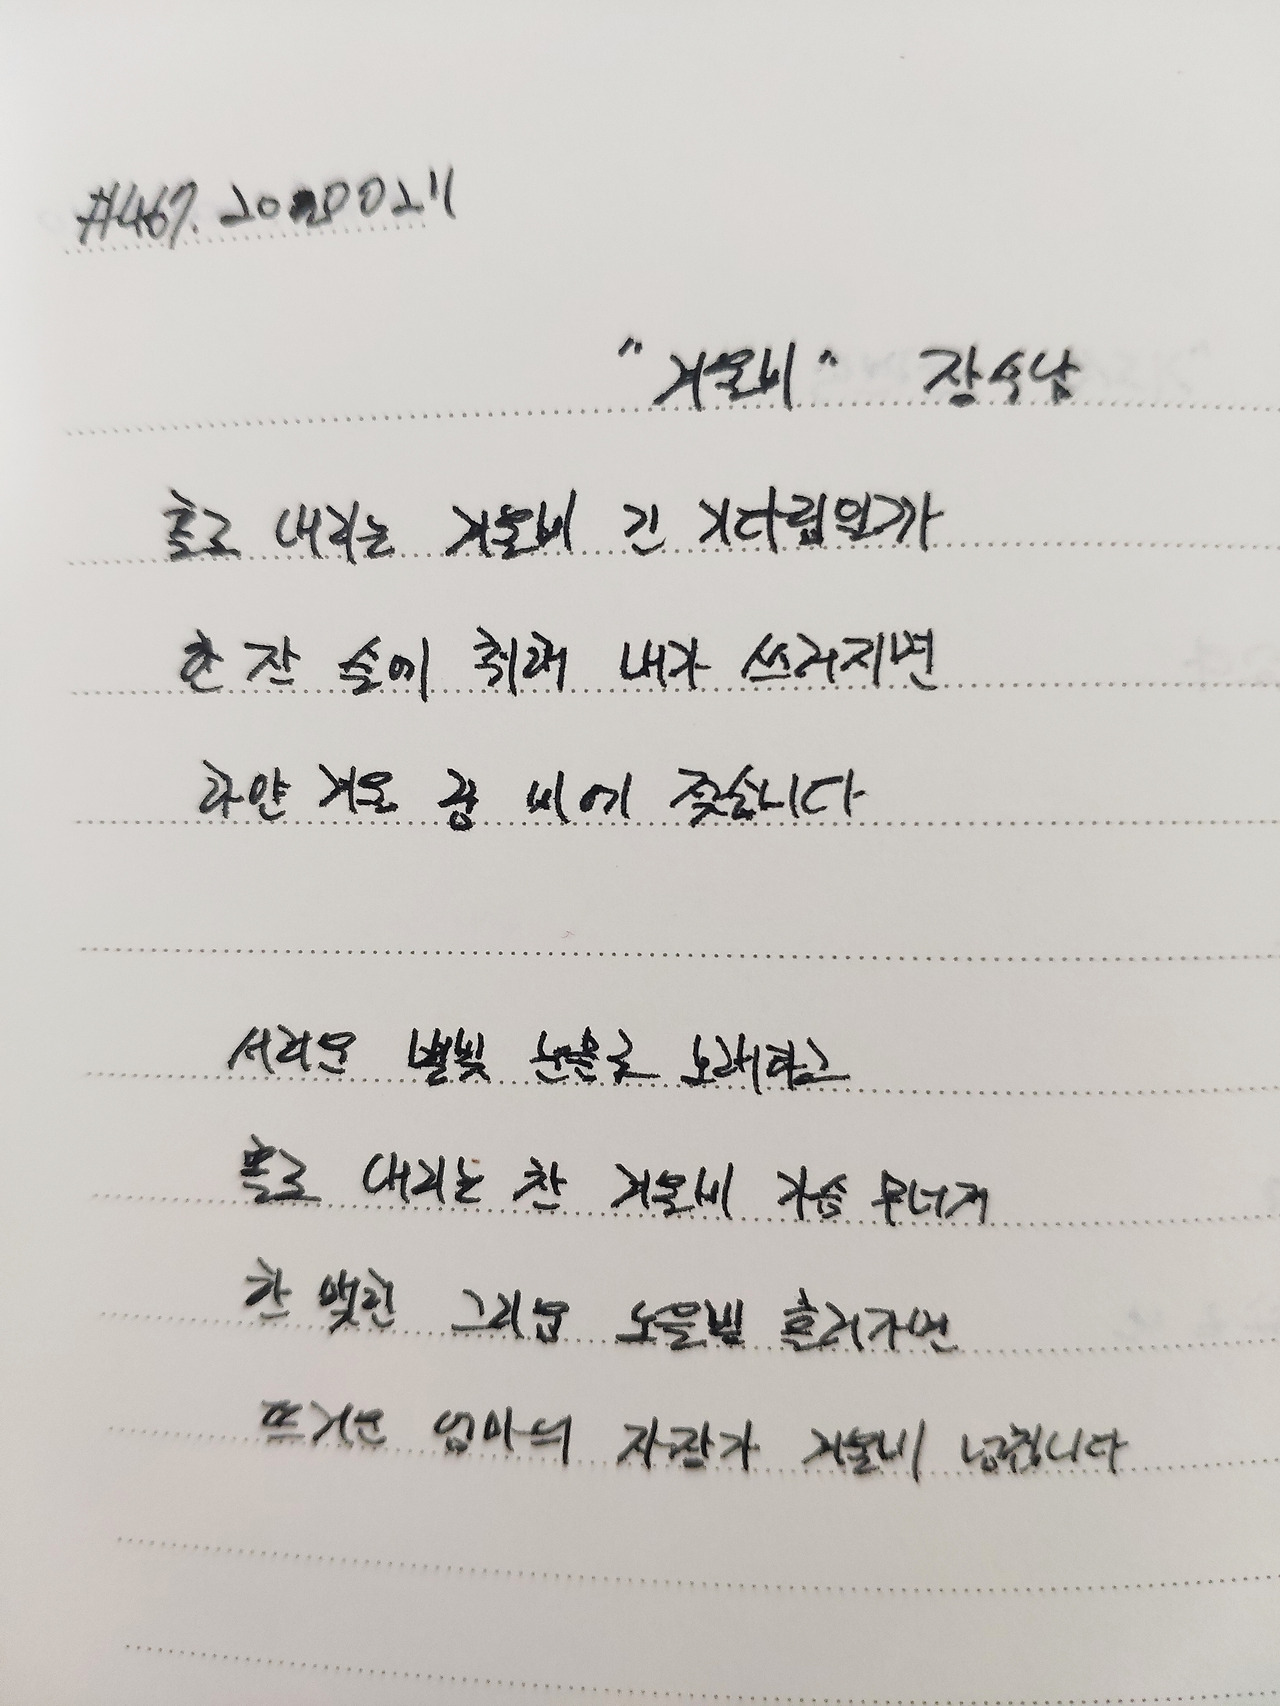 "겨울비" 장수남
홀로 내리는 겨울비 긴 기다림인가
한 잔 술에 취해 내가 쓰러지면
하얀 겨울 강 비에 젖습니다
서러운 별빛 눈물로 노래하고
홀로 내리는 찬 겨울비 가슴 무너져
한 맺힌 그리움 노을빛 흩어지면
뜨거운 엄마의 자장가 겨울비 넘칩니다